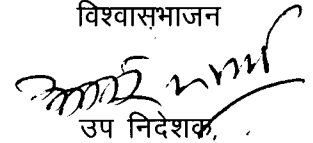 विश्वासभाजन
उप निदेशक,